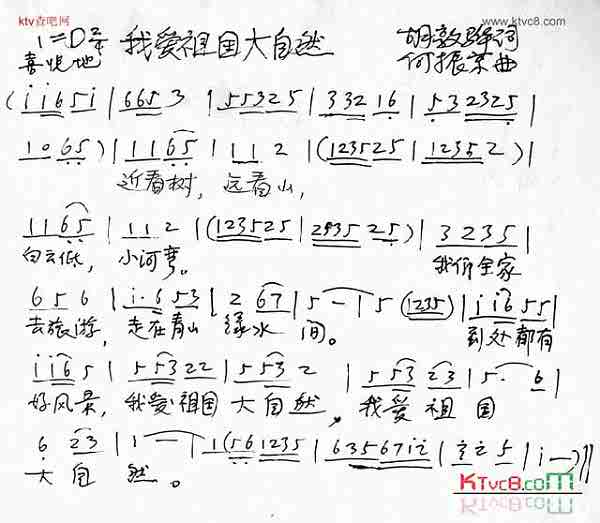 ktv查吧网
www.ktvc8.com
1=D 2/4 我爱祖国大自然 胡敦骅词
喜悦地 何振京曲
(i i 6 5 i | 6 6 5 3 | 5 5 3 2 5 | 3 3 2 1 6 | 5 3 2 3 2 5 |
1 0 6 5) | 1 1 6 5 | 1 1 2 | (1 2 3 5 2 5 | 1 2 3 5 2) |
近看树, 远看山,
1 1 6 5 | 1 1 2 | (1 2 3 5 2 5 | 2 3 5 2 5) | 3 2 3 5 |
白云低, 小河弯。 我们全家
6 5 6 | i. 6 5 3 | 2 6 7 | 5 - | 5 (1 2 3 5) | i i 6 5 5 |
去旅游, 走在青山 绿水 间。 到处都有
i i 6 5 | 5 5 3 2 2 | 5 5 3 2 | 5 5 3 2 3 | 5. 6 |
好风景, 我爱祖国 大自然, 我爱祖国
6 2 3 | 1 - | 1 (5 6 1 2 3 5 | 6 3 5 6 7 i 2 | 3 2 5 | i -) ||
大自 然。
KTvc8.com